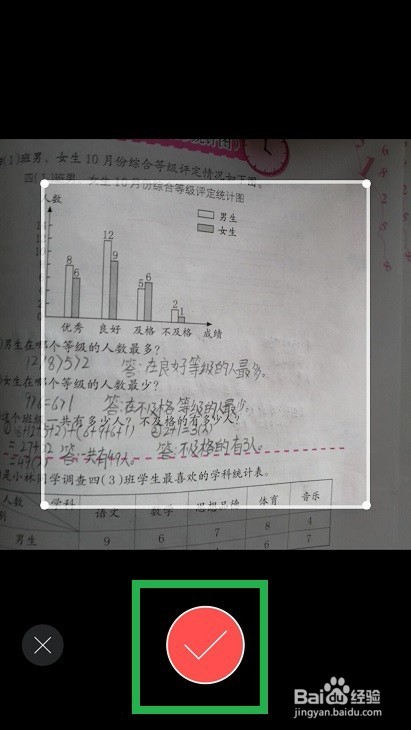 (1)班男、女生10月份综合等级评定情况如下图。
四(1)班男、女生10月份综合等级评定统计图
人数
男生
女生
14
12
8
6
12
9
5
6
2
1
优秀 良好 及格 不及格 成绩
男生在哪个等级的人数最多?
12>8>5>2 答:在良好等级的人最多。
女生在哪个等级的人数最少?
9>6=6>1 答:在不及格等级的人最少。
这个班级一共有多少人?不及格的有多少人?
2+1=3(人)
=27+22 答:一共有49人。 答:不及格的有3人。
=49(人)
是小林同学调查四(3)班学生最喜欢的学科统计表。
人数 学科 语文 数学 思想品德 体育 音乐
男生 9 6 7 8 4
6 7
Baidu经验
jingyan.baidu.com